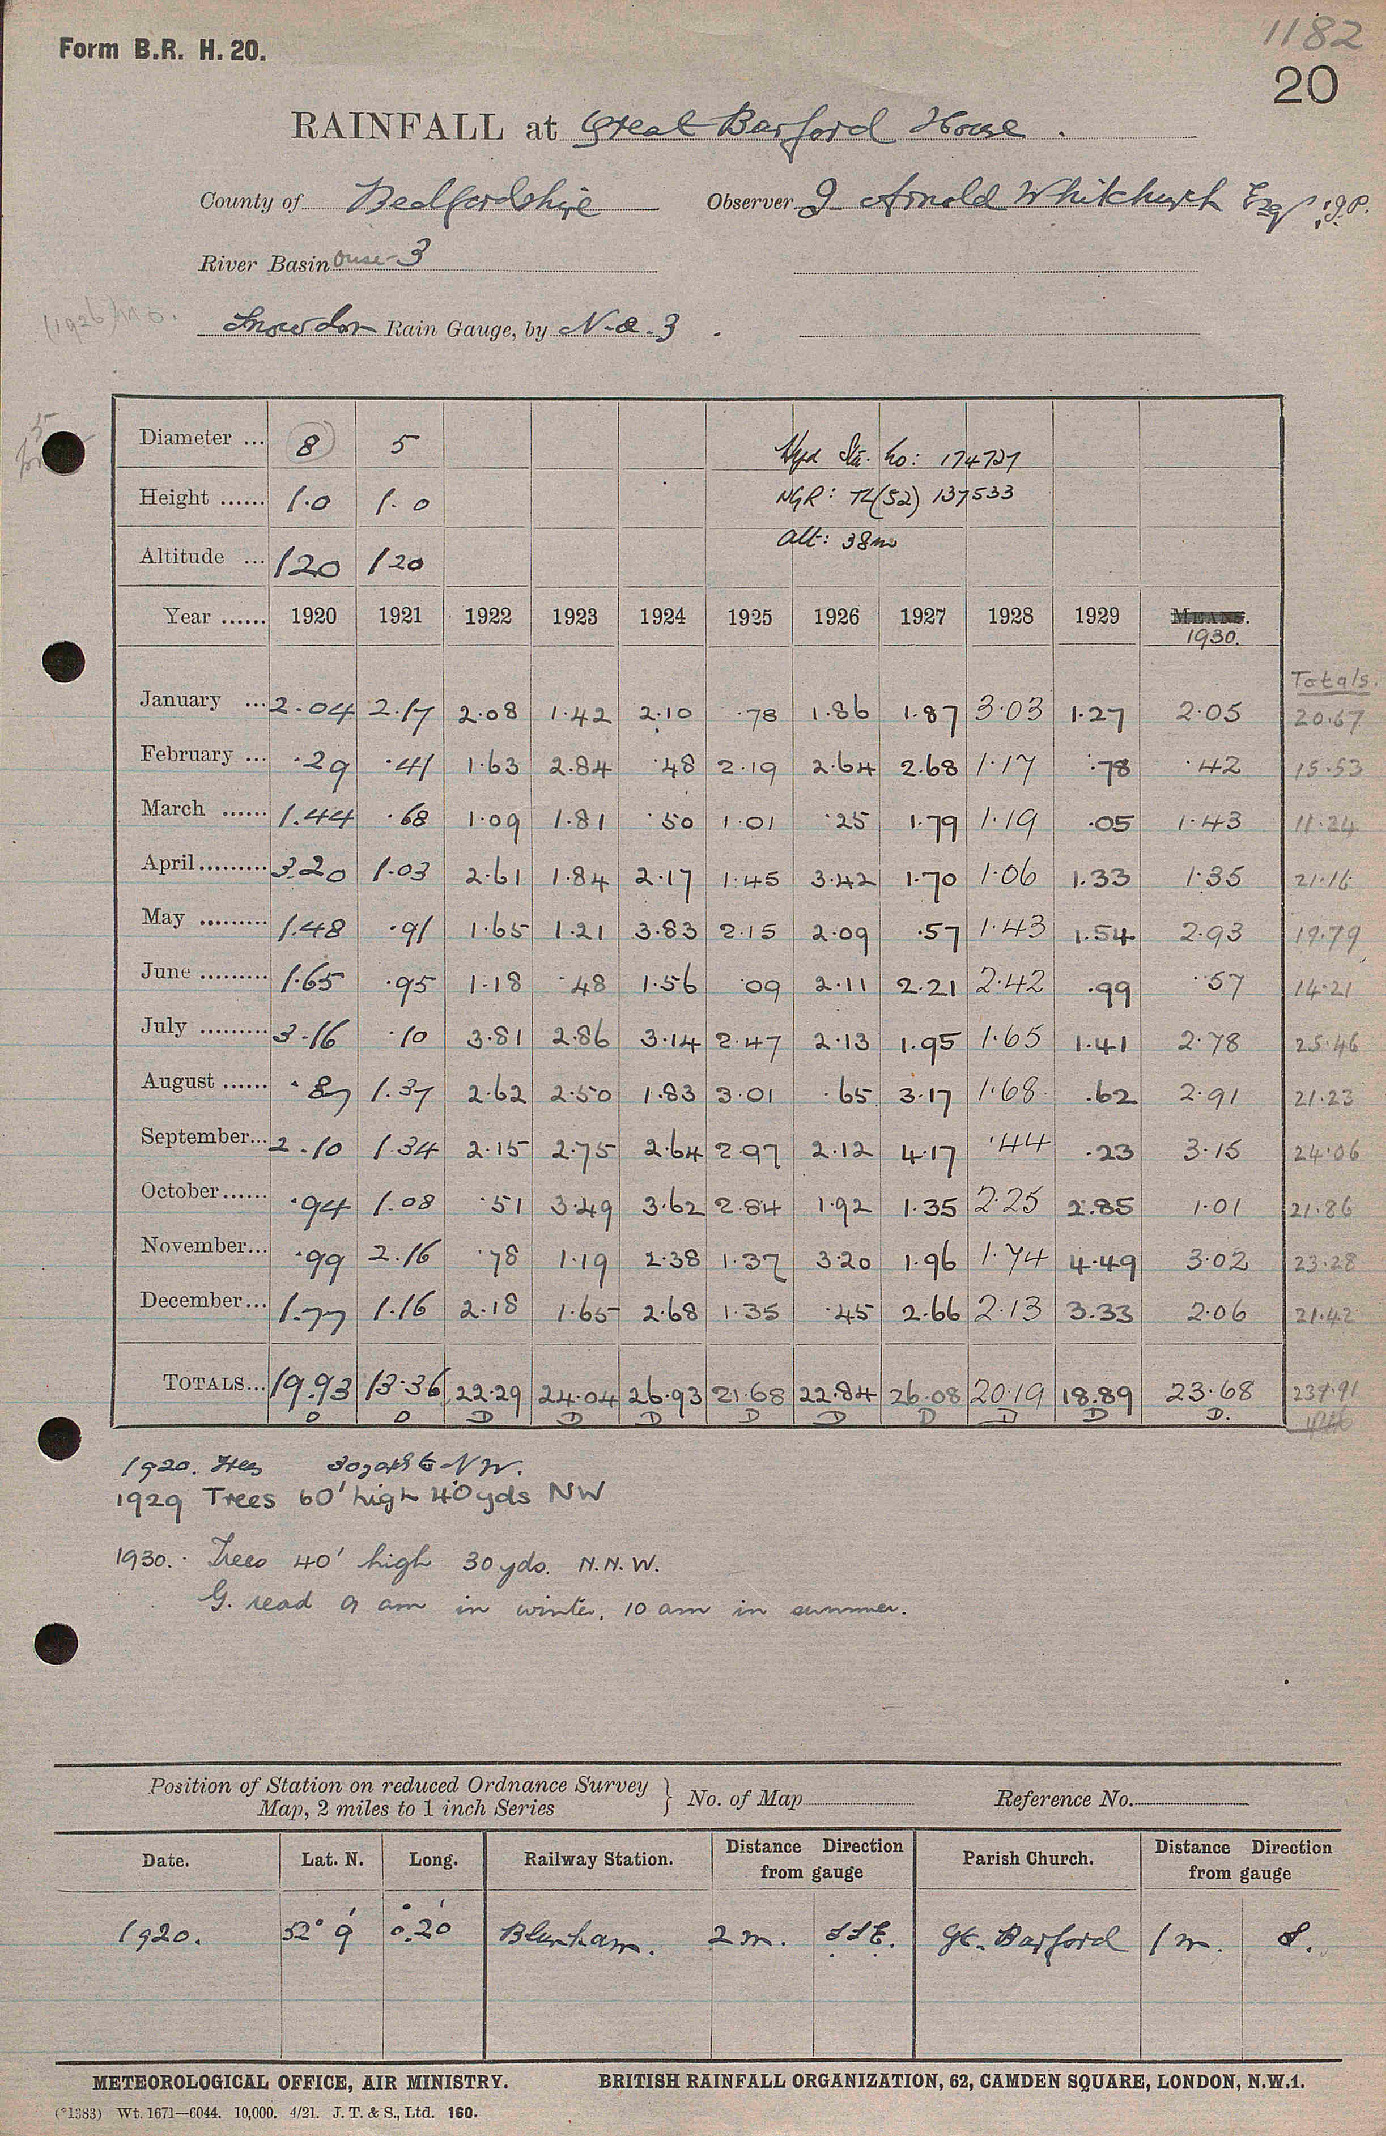 1182
Form B.R. H. 20.
20
RAINFALL at Great Barford House.
County of Bedfordshire Observer J Arnold Whitchurch Esq J.P.
River Basin Ouse 3
(1926)
Snowdon Rain Gauge, by N & Z
Diameter ... 8 5 Hyd Sta. No: 174727
Height ...... 1.0 1.0 NGR: TL(52) 137533
Altitude ... 120 120 Alt: 38m
Year ...... 1920 1921 1922 1923 1924 1925 1926 1927 1928 1929 MEANS.
1930.
Totals.
January ... 2.04 2.17 2.08 1.42 2.10 .78 1.86 1.87 3.03 1.27 2.05 20.67
February ... .29 .41 1.63 2.84 .48 2.19 2.64 2.68 1.17 .78 .42 15.53
March ...... 1.44 .68 1.09 1.81 .50 1.01 .25 1.79 1.19 .05 1.43 11.24
April ......... 3.20 1.03 2.61 1.84 2.17 1.45 3.42 1.70 1.06 1.33 1.35 21.16
May ......... 1.48 .91 1.65 1.21 3.83 2.15 2.09 .57 1.43 1.54 2.93 19.79
June ......... 1.65 .95 1.18 .48 1.56 .09 2.11 2.21 2.42 .99 .57 14.21
July ......... 3.16 .10 3.81 2.86 3.14 2.47 2.13 1.95 1.65 1.41 2.78 25.46
August ...... .87 1.37 2.62 2.50 1.83 3.01 .65 3.17 1.68 .62 2.91 21.23
September... 2.10 1.34 2.15 2.75 2.64 2.97 2.12 4.17 .44 .23 3.15 24.06
October...... .94 1.08 .51 3.49 3.62 2.84 1.92 1.35 2.25 2.85 1.01 21.86
November... .99 2.16 .78 1.19 2.38 1.37 3.20 1.96 1.74 4.49 3.02 23.28
December... 1.77 1.16 2.18 1.65 2.68 1.35 .45 2.66 2.13 3.33 2.06 21.42
TOTALS... 19.93 13.36 22.29 24.04 26.93 21.68 22.84 26.08 20.19 18.89 23.68 239.91
D D D D D D D D D D D.
1920. Trees 30 yds to NW.
1929 Trees 60' high 40 yds NW
1930. Trees 40' high 30 yds. N.N.W.
G. read 9 am in winter, 10 am in summer.
Position of Station on reduced Ordnance Survey
Map, 2 miles to 1 inch Series } No. of Map Reference No.
Date. Lat. N. Long. Railway Station. Distance Direction from gauge Parish Church. Distance Direction from gauge
1920. 52° 9' 0° 20' Blunham. 2 m. SSE. Gt. Barford 1 m. S.
METEOROLOGICAL OFFICE, AIR MINISTRY. BRITISH RAINFALL ORGANIZATION, 62, CAMDEN SQUARE, LONDON, N.W.1.
(*1383) Wt. 1671—6044. 10,000. 4/21. J. T. & S., Ltd. 160.